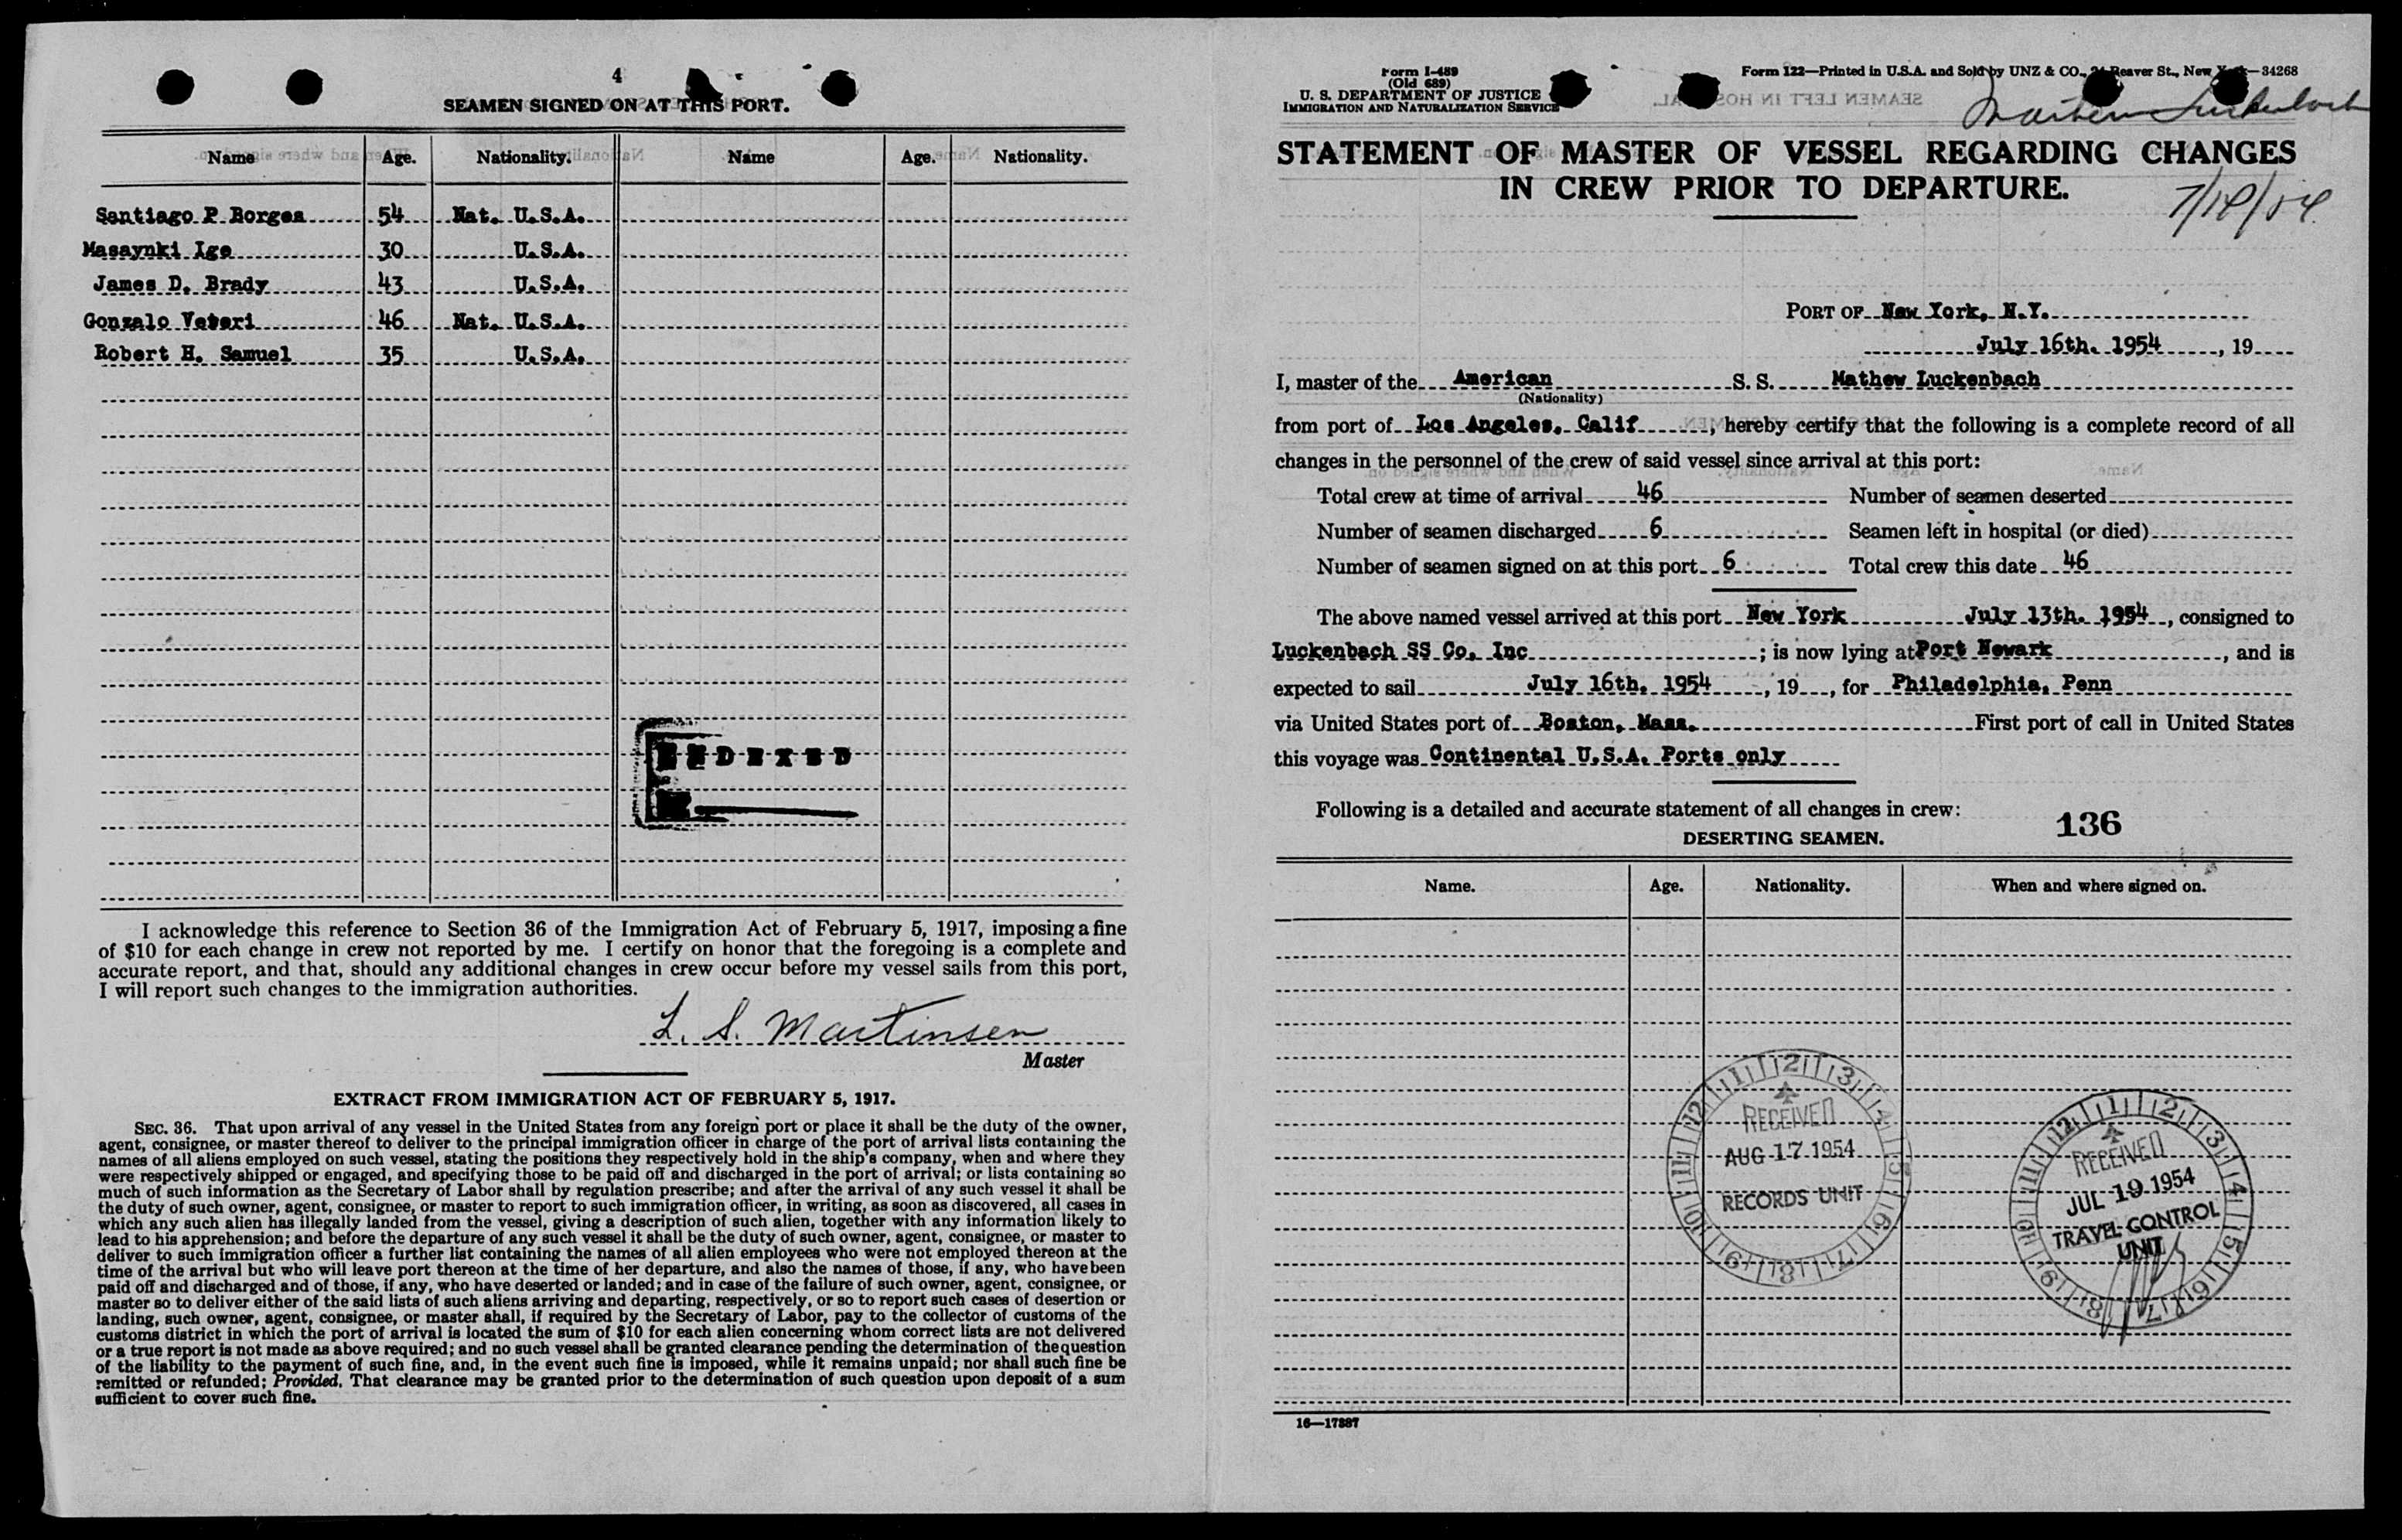 4
SEAMEN SIGNED ON AT THIS PORT.
Name Age. Nationality. Name Age. Nationality.
Santiago P Borges 54 Nat. U.S.A.
Masaynki Ige 30 U.S.A.
James D. Brady 43 U.S.A.
Gonzalo Veteri 46 Nat. U.S.A.
Robert H. Samuel 35 U.S.A.
INDEXED
I acknowledge this reference to Section 36 of the Immigration Act of February 5, 1917, imposing a fine
of $10 for each change in crew not reported by me. I certify on honor that the foregoing is a complete and
accurate report, and that, should any additional changes in crew occur before my vessel sails from this port,
I will report such changes to the immigration authorities.
L. S. Martinsen
Master
EXTRACT FROM IMMIGRATION ACT OF FEBRUARY 5, 1917.
SEC. 36. That upon arrival of any vessel in the United States from any foreign port or place it shall be the duty of the owner,
agent, consignee, or master thereof to deliver to the principal immigration officer in charge of the port of arrival lists containing the
names of all aliens employed on such vessel, stating the positions they respectively hold in the ship's company, when and where they
were respectively shipped or engaged, and specifying those to be paid off and discharged in the port of arrival; or lists containing so
much of such information as the Secretary of Labor shall by regulation prescribe; and after the arrival of any such vessel it shall be
the duty of such owner, agent, consignee, or master to report to such immigration officer, in writing, as soon as discovered, all cases in
which any such alien has illegally landed from the vessel, giving a description of such alien, together with any information likely to
lead to his apprehension; and before the departure of any such vessel it shall be the duty of such owner, agent, consignee, or master to
deliver to such immigration officer a further list containing the names of all alien employees who were not employed thereon at the
time of the arrival but who will leave port thereon at the time of her departure, and also the names of those, if any, who have been
paid off and discharged and of those, if any, who have deserted or landed; and in case of the failure of such owner, agent, consignee, or
master so to deliver either of the said lists of such aliens arriving and departing, respectively, or so to report such cases of desertion or
landing, such owner, agent, consignee, or master shall, if required by the Secretary of Labor, pay to the collector of customs of the
customs district in which the port of arrival is located the sum of $10 for each alien concerning whom correct lists are not delivered
or a true report is not made as above required; and no such vessel shall be granted clearance pending the determination of the question
of the liability to the payment of such fine, and, in the event such fine is imposed, while it remains unpaid; nor shall such fine be
remitted or refunded; Provided, That clearance may be granted prior to the determination of such question upon deposit of a sum
sufficient to cover such fine.
Form I-489
(Old 689)
U. S. DEPARTMENT OF JUSTICE
IMMIGRATION AND NATURALIZATION SERVICE
Form 122—Printed in U.S.A. and Sold by UNZ & CO., Beaver St., New York—34268
Luckenbach
STATEMENT OF MASTER OF VESSEL REGARDING CHANGES
IN CREW PRIOR TO DEPARTURE.
PORT OF New York, N.Y.
July 16th. 1954, 19
I, master of the American S. S. Mathew Luckenbach
(Nationality)
from port of Los Angeles, Calif, hereby certify that the following is a complete record of all
changes in the personnel of the crew of said vessel since arrival at this port:
Total crew at time of arrival 46 Number of seamen deserted
Number of seamen discharged 6 Seamen left in hospital (or died)
Number of seamen signed on at this port 6 Total crew this date 46
The above named vessel arrived at this port New York July 13th. 1954, consigned to
Luckenbach SS Co, Inc; is now lying at Port Newark, and is
expected to sail July 16th. 1954, 19, for Philadelphia, Penn
via United States port of Boston, Mass. First port of call in United States
this voyage was Continental U.S.A. Ports only
Following is a detailed and accurate statement of all changes in crew:
136
DESERTING SEAMEN.
Name. Age. Nationality. When and where signed on.
RECEIVED
AUG 17 1954
RECORDS UNIT
RECEIVED
JUL 19 1954
TRAVEL CONTROL
UNIT
16—17887